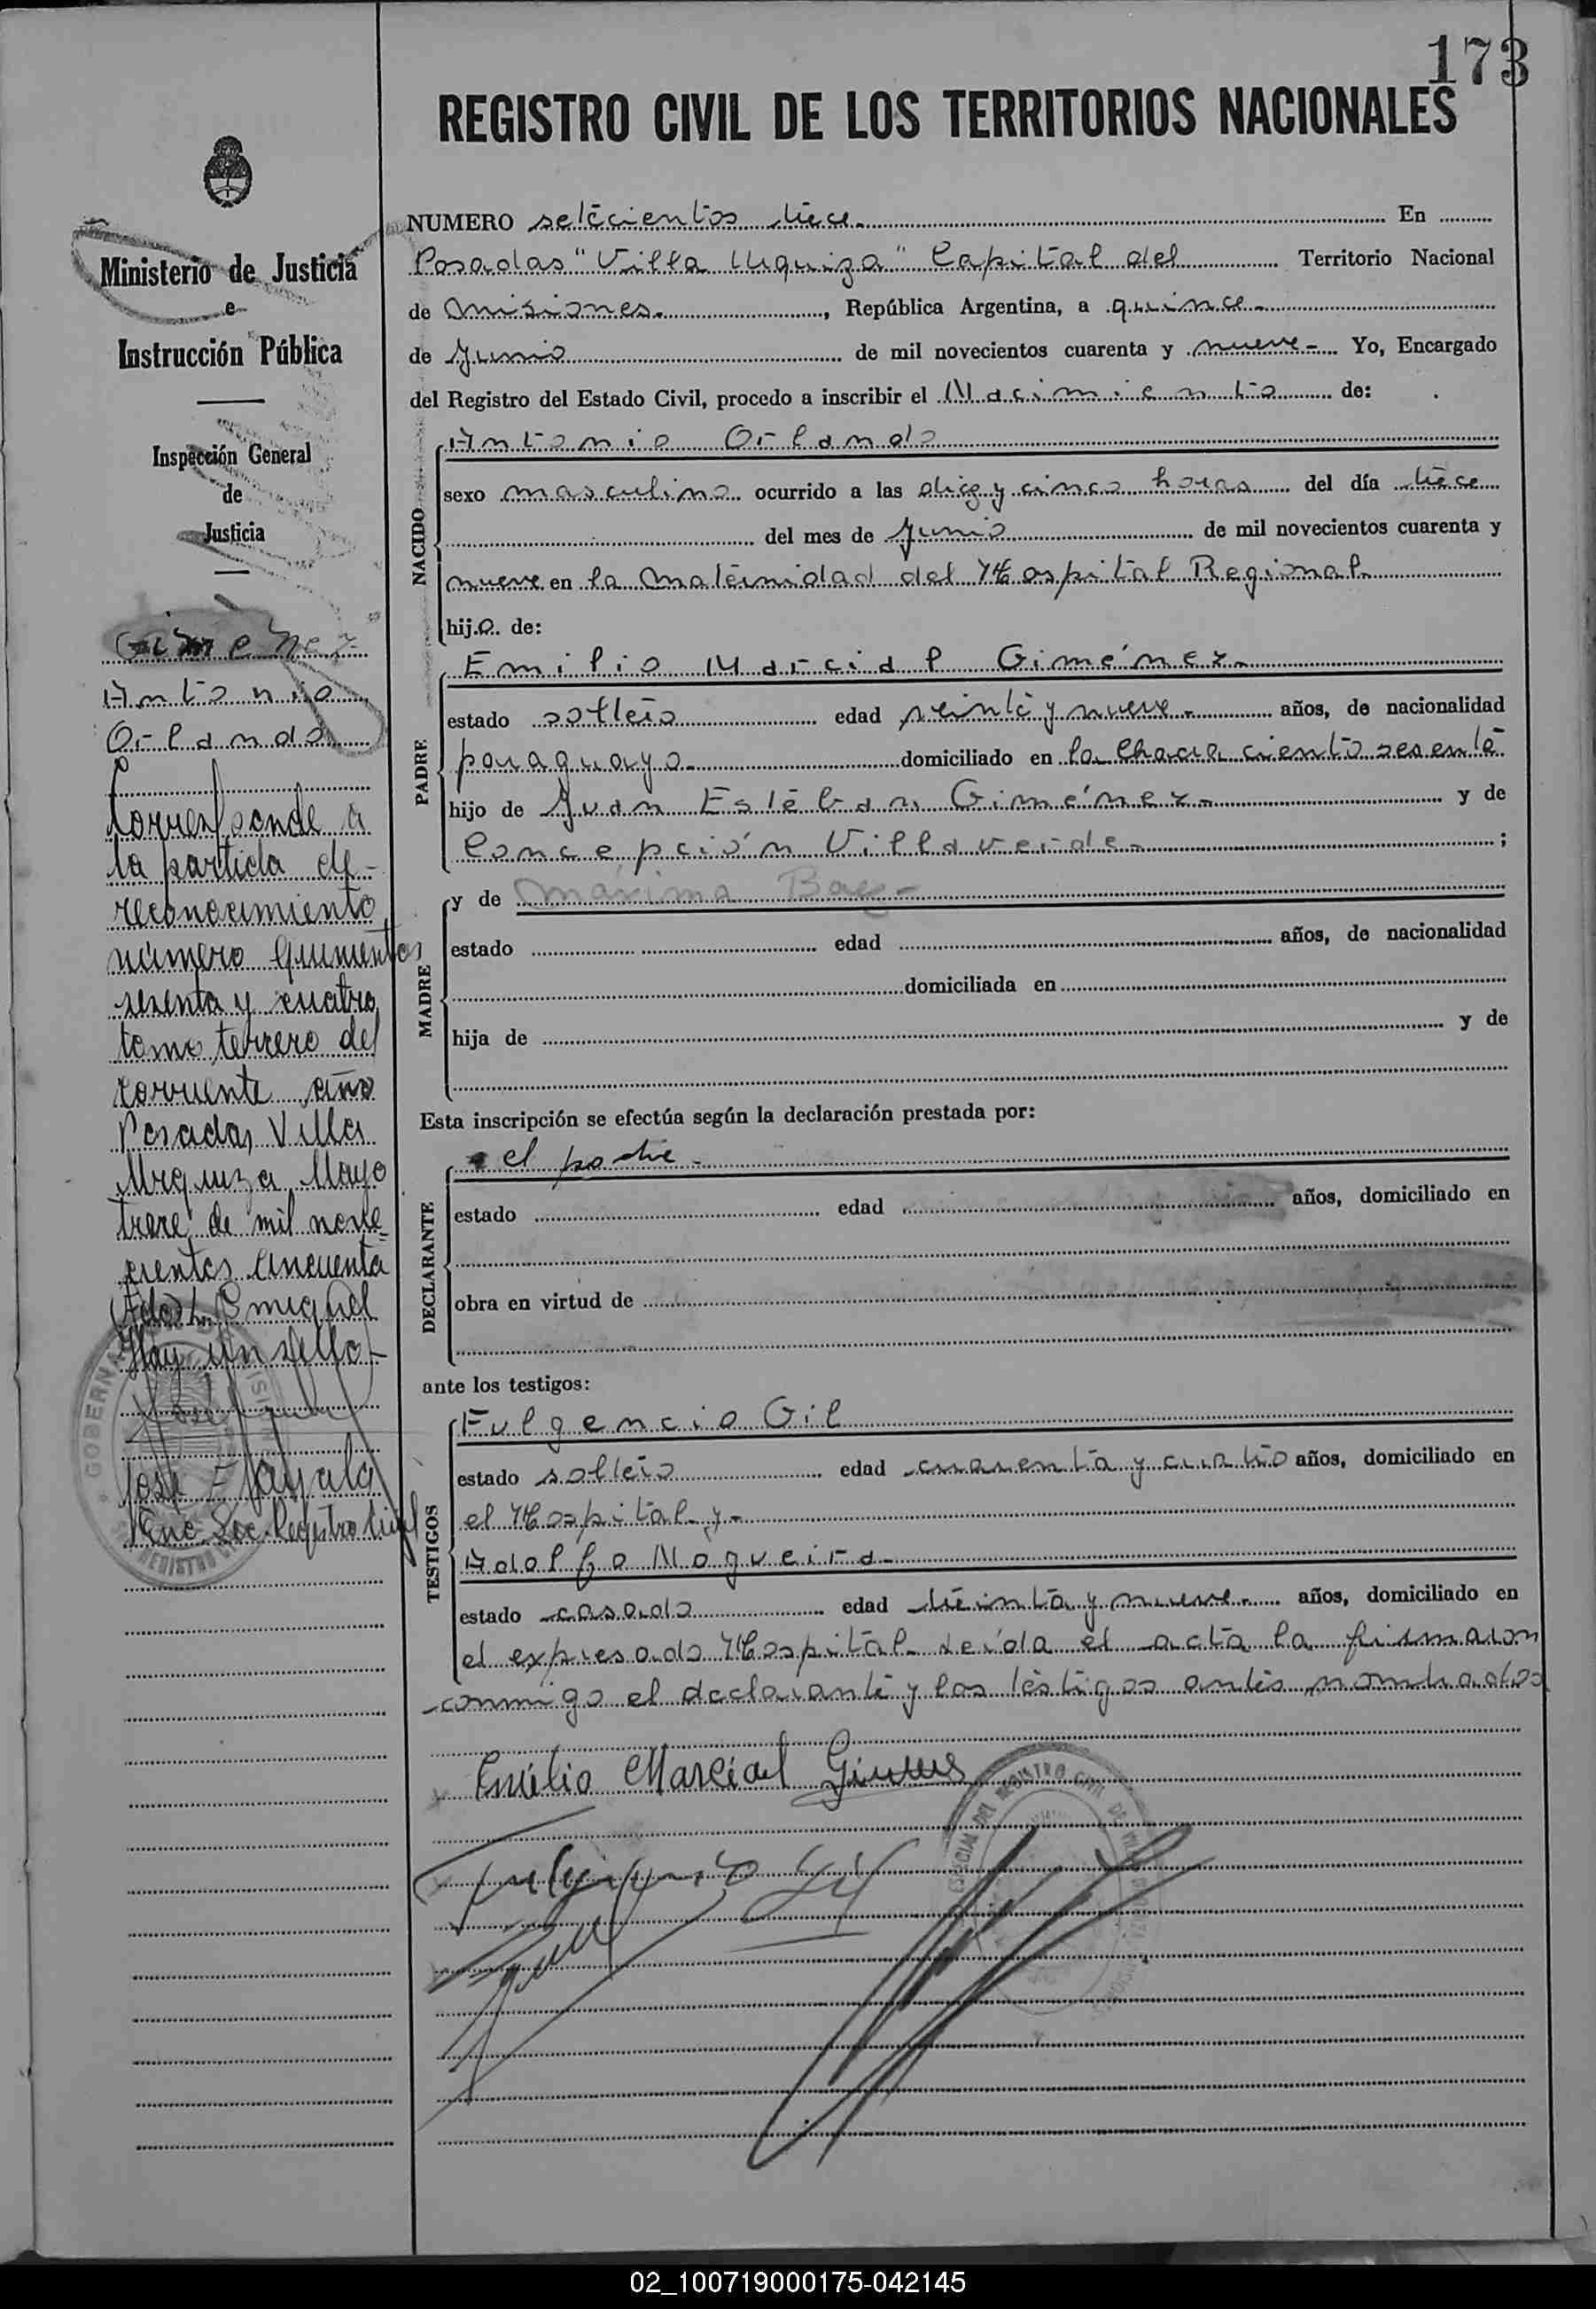 173
REGISTRO CIVIL DE LOS TERRITORIOS NACIONALES
Ministerio de Justicia
e
Instrucción Pública
Inspección General
de
Justicia
Gimenez
Antonio
Orlando
Corresponde a
la partida de
reconocimiento
número quinientos
sesenta y cuatro
tomo tercero del
corriente año
Posadas Villa
Urquiza Mayo
trece de mil nove-
cientos cincuenta
(Fdo) L. E miquel
Hay un sello-
José E Ayala
Enc. Sec. Registro Civil
NUMERO setecientos trece. En
Posadas "Villa Urquiza" Capital del Territorio Nacional
de Misiones., República Argentina, a quince-
de Junio de mil novecientos cuarenta y nueve- Yo, Encargado
del Registro del Estado Civil, procedo a inscribir el Nacimiento de:
NACIDO
Antonio Orlando
sexo masculino ocurrido a las diez y cinco horas del día trece
del mes de Junio de mil novecientos cuarenta y
nueve en la Maternidad del Hospital Regional
hijo. de:
PADRE
Emilio Marcial Giménez-
estado soltero edad veinte y nueve- años, de nacionalidad
paraguayo- domiciliado en la Chacra ciento sesenta
hijo de Juan Esteban Giménez- y de
Concepción Villaverde- ;
MADRE
y de Máxima Baez-
estado edad años, de nacionalidad
domiciliada en
hija de y de
Esta inscripción se efectúa según la declaración prestada por:
DECLARANTE
el padre-
estado edad años, domiciliado en
obra en virtud de
ante los testigos:
TESTIGOS
Fulgencio Gil
estado soltero edad cuarenta y cuatro años, domiciliado en
el Hospital y-
Adolfo Nogueira-
estado casado edad treinta y nueve- años, domiciliado en
el expresado Hospital- Leída el acta la firmaron
conmigo el declarante y los testigos antes nombrados
Emilio Marcial Gimenes
Fulgencio Gil
02_100719000175-042145